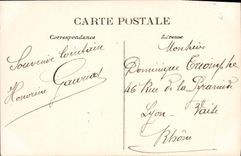 CARTE POSTALE
Correspondance
Adresse
Souvenir lointain
Honorine Gauvrias
Monsieur
Dominique Triomphe
46 Rue de la Pyramide
Lyon - Vaise
Rhône